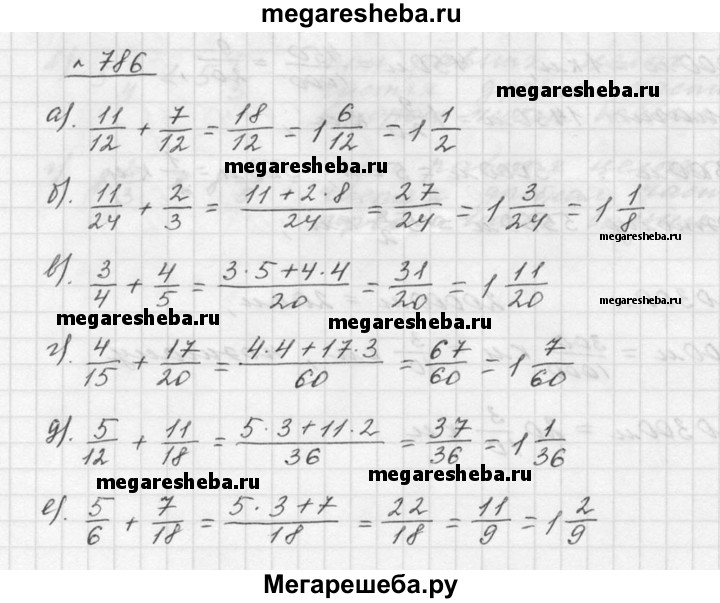 megaresheba.ru
№ 786
megaresheba.ru
а). 11/12 + 7/12 = 18/12 = 1 6/12 = 1 1/2
megaresheba.ru
б). 11/24 + 2/3 = (11 + 2·8)/24 = 27/24 = 1 3/24 = 1 1/8
megaresheba.ru
в). 3/4 + 4/5 = (3·5+4·4)/20 = 31/20 = 1 11/20
megaresheba.ru
megaresheba.ru
megaresheba.ru
г). 4/15 + 17/20 = (4·4+17·3)/60 = 67/60 = 1 7/60
д). 5/12 + 11/18 = (5·3+11·2)/36 = 37/36 = 1 1/36
megaresheba.ru
megaresheba.ru
е). 5/6 + 7/18 = (5·3+7)/18 = 22/18 = 11/9 = 1 2/9
megaresheba.ru
Мегарешеба.ру